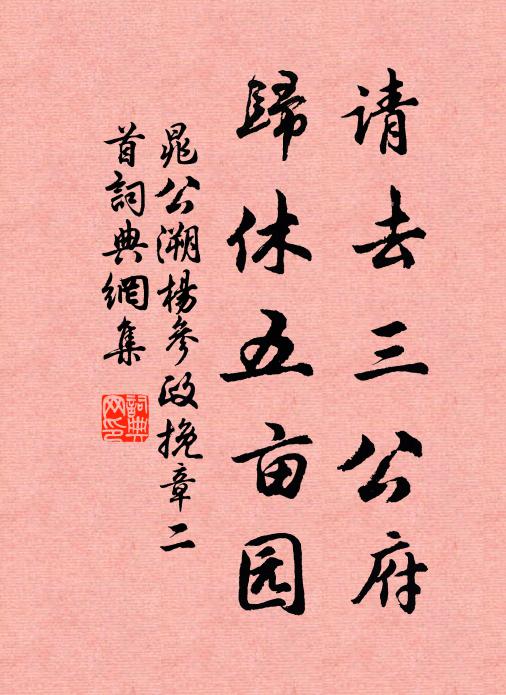 请去三公府
歸休五亩园
晁公溯楊參政挽章二
首詞典網集
詞典
网印